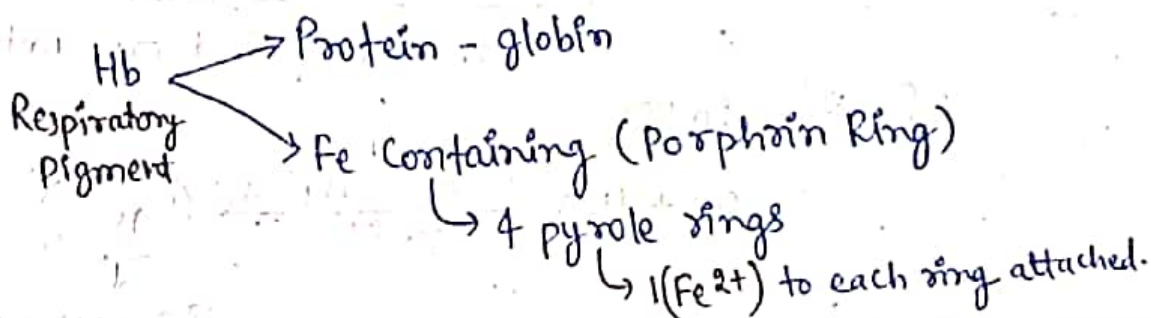 Hb
Respiratory
Pigment
Protein - globin
Fe Containing (Porphrin Ring)
4 pyrole rings
1(Fe2+) to each ring attached.